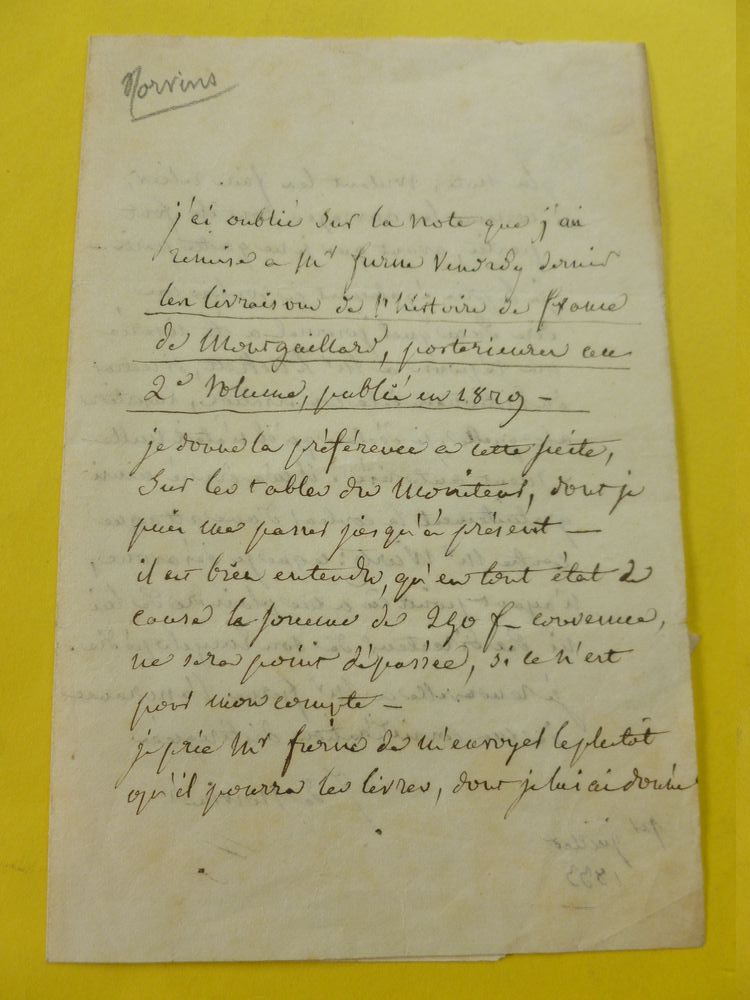 Norvins
j'ai oublié sur la note que j'ai
remise a Mr furne Vendredy dernier
les livraisons de l'histoire de france
de Montgaillard, postérieures au
2e Volume, publié en 1829 -
je donne la préférence a cette suite,
sur les tables du Moniteur, dont je
puis me passer jusqu'à présent —
il est bien entendu, qu'en tout état de
cause la somme de 290 f convenue,
ne sera point dépassée, si ce n'est
pour mon compte -
je prie Mr furne de m'envoyer le plutôt
qu'il pourra les livres, dont je lui ai donné